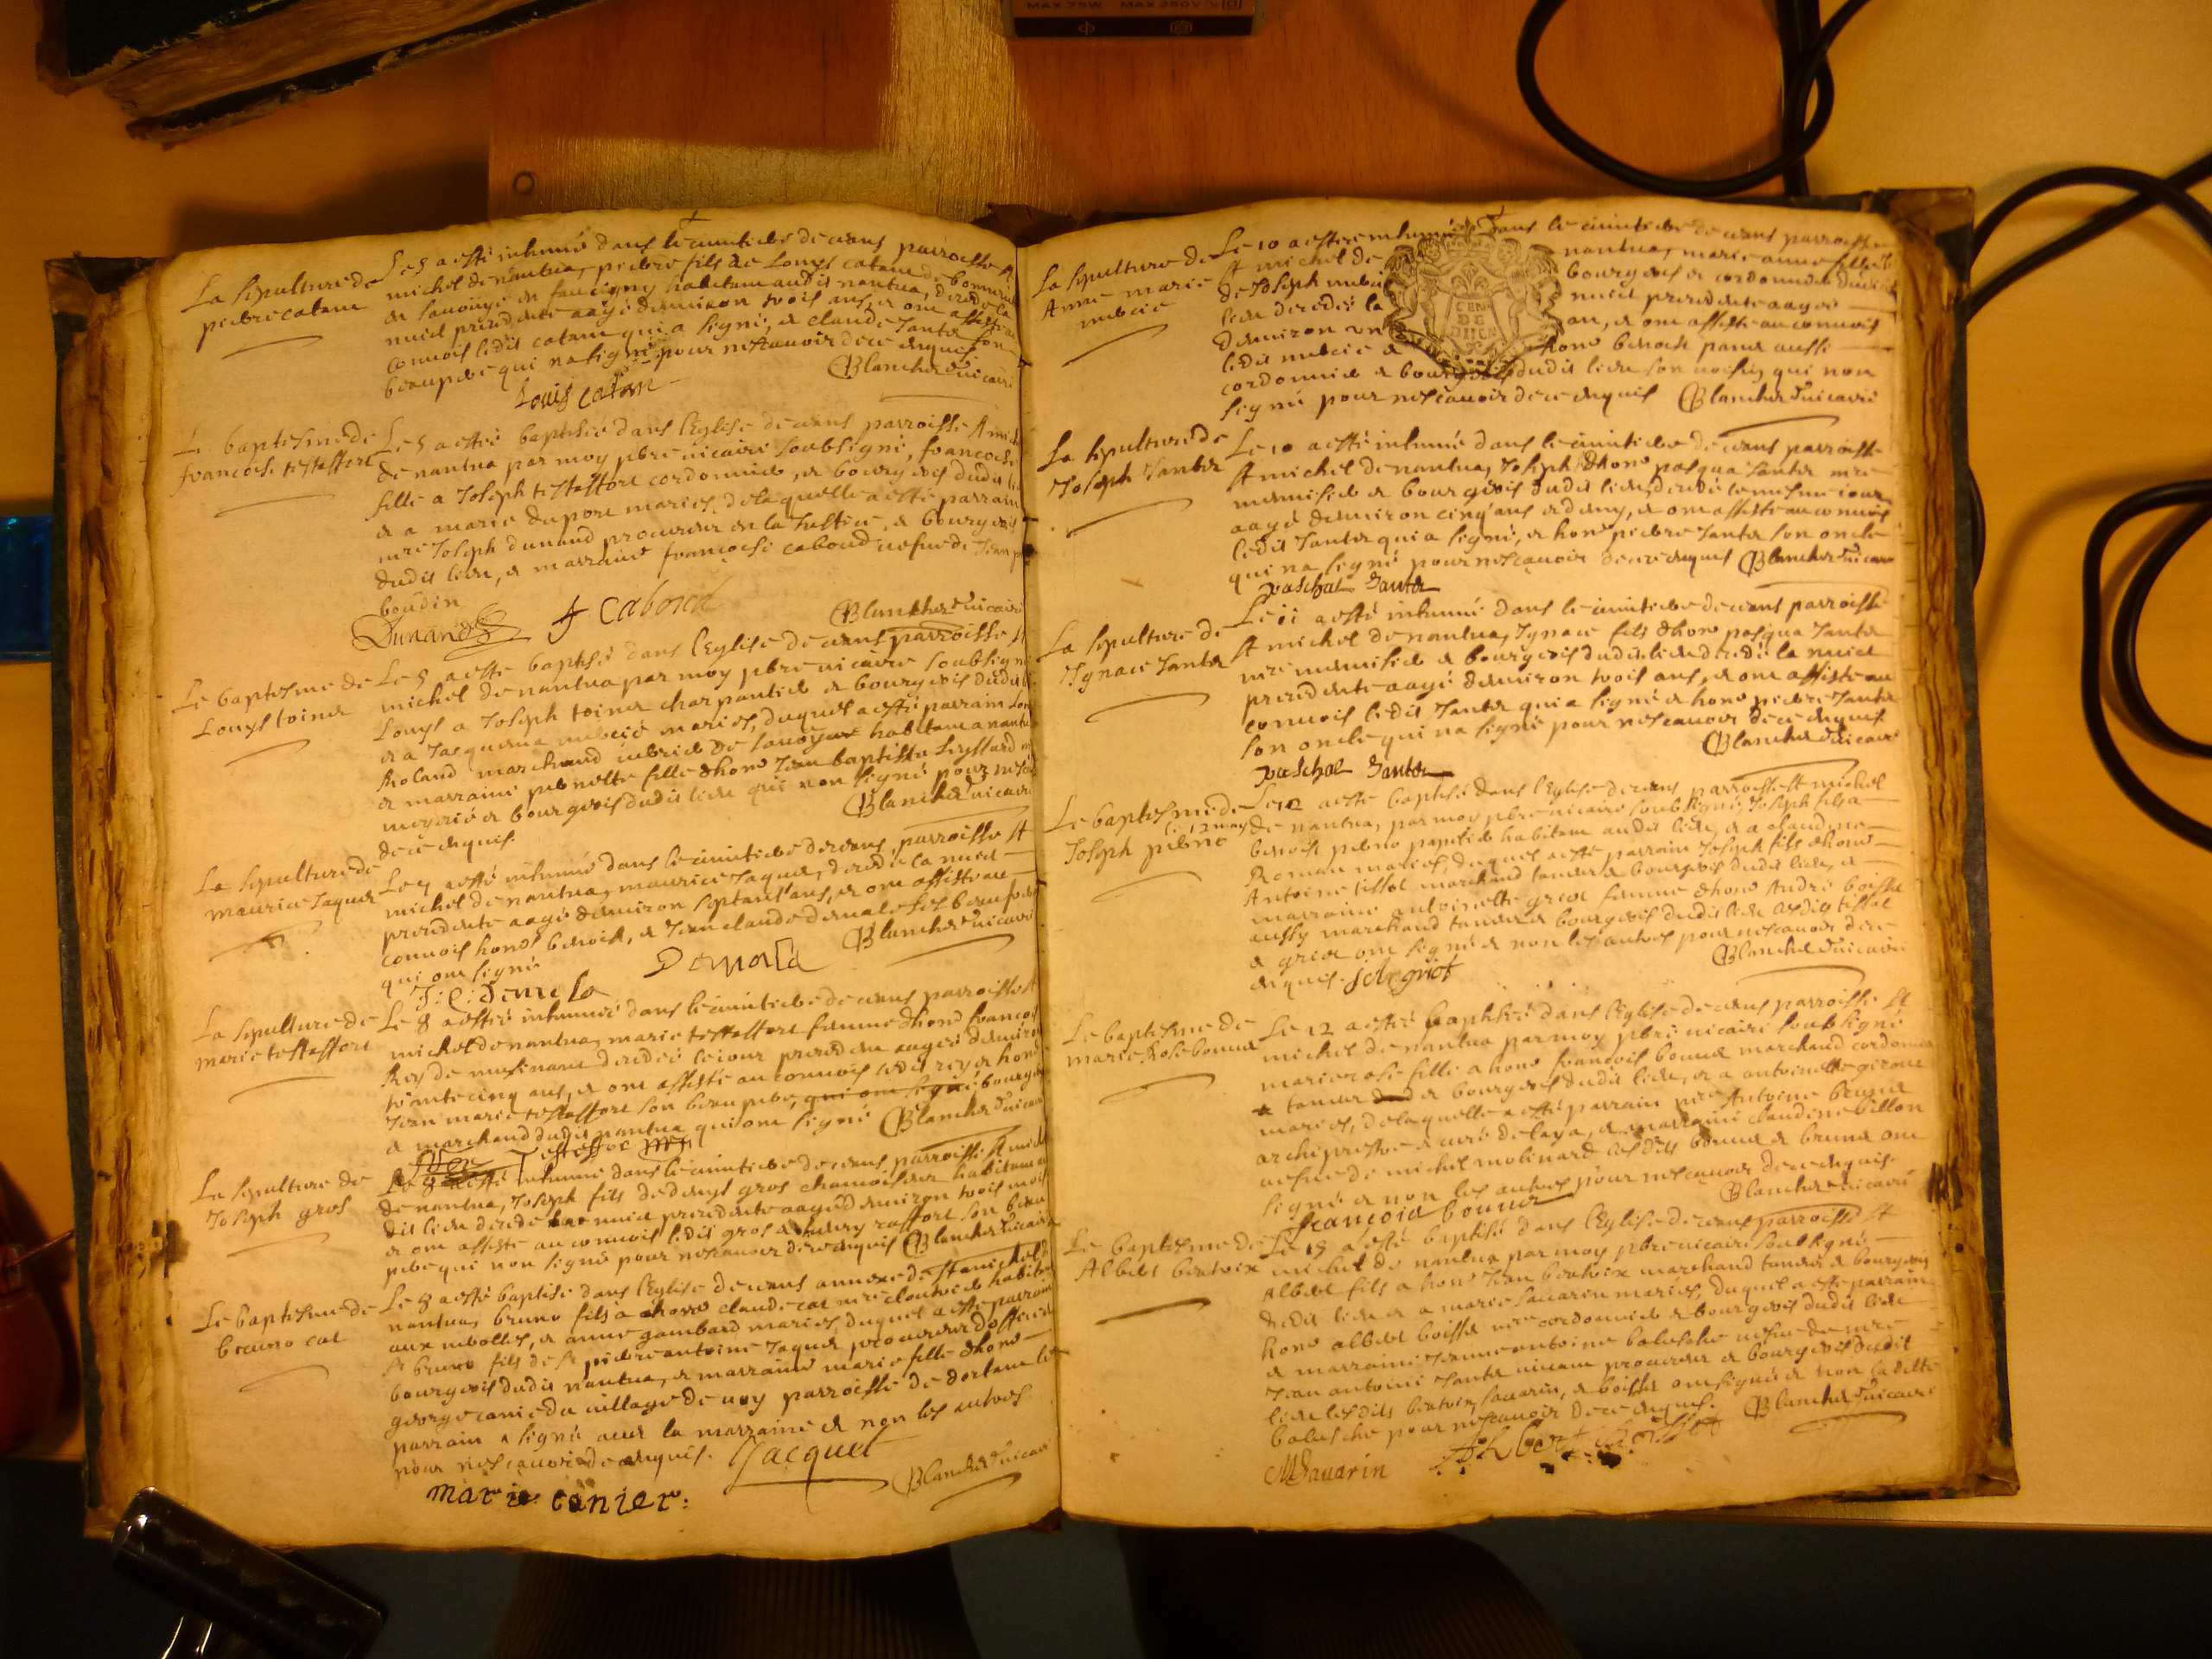 MAX 75W MAX 250V
La sepulture de
pierre catam
Le 5 a esté inhumé dans le cimitiere de ceans parroisse St
michel de nantua, pierre fils de Louys catam de bonneville
en sauoye en faucigny habitam audit nantua, decedé la
nuict precedente aagé denuiron trois ans, et ont assisté au
conuois ledit catam qui a signé, et claude Janter son
beaupere qui na signé pour ne scauoir de ce enquis
Blanchet vicaire
Louis catam
Le baptesme de
francoise testaffort
Le 5 a esté baptisée dans l'Eglise de ceans parroisse St michel
de nantua par moy pbre vicaire soubsigné, francoise
fille a Joseph testaffort cordonnier, et bourgeois dudit lieu
et a marie duport mariés, de laquelle a esté parrain
mre Joseph dunand procureur en la Justice, et bourgeois
dudit lieu, et marraine francoise caboud vefue de Jean
boudin
Blanchet vicaire
Dunand F Caboud
Le baptesme de
Louys toiner
Le 5 a esté baptisé dans l'Eglise de ceans parroisse St
michel de nantua par moy pbre vicaire soubsigné
Louys a Joseph toiner charpantier et bourgeois dudit lieu
et a Jacquema mercié mariés, duquel a esté parrain
Roland marchand de sauoye habitam a nantua
et marraine pernette fille dhono Jean baptiste
et bourgeois dudit lieu qui non signé pour ne scauoir
de ce enquis.
Blanchet vicaire
La sepulture de
maurice Jaquer
Le 7 a esté inhumé dans le cimitiere de ceans parroisse St
michel de nantua, maurice Jaquer, decedé la nuict
precedente aagé denuiron septante ans, et ont assisté au
conuois hono benoist, et Jean claude demale ses beaufreres
qui ont signé
Blanchet vicaire
J. C. Demela Demala
La sepulture de
marie testaffort
Le 8 a esté inhumée dans le cimitiere de ceans parroisse St
michel de nantua, marie testaffort femme dhono francois
Rey de musinam decedée le iour precedent aagée denuiron
trente cinq ans, et ont assisté au conuois ledit rey et hono
Jean marie testaffort son beaupere, qui ont signé bourgeois
et marchand dudit nantua qui ont signé Blanchet vicaire
La sepulture de
Joseph gros
Le 8 a esté inhumé dans le cimitiere de ceans parroisse St michel
de nantua, Joseph fils de denys gros chamoiseur habitam au
dit lieu decedé la nuict precedente aagé denuiron trois mois
et ont assisté au conuois ledit gros et son beau
pere qui non signé pour ne scauoir de ce enquis Blanchet vicaire
Le baptesme de
bruno cat
Le 8 a esté baptisé dans l'Eglise de ceans annexe de St michel de
nantua, bruno fils a hono claude cat mre cloutier habitam
aux, et anne gambard mariés, duquel a esté parrain
Sr bruno fils de Sr pierre antoine Jaquer procureur doffice et
bourgeois dudit nantua, et marraine marie fille dhono
george canier du village de uoy parroisse de dortam le
parrain a signé auec la marraine et non les autres
pour ne scauoir de ce enquis. Jacquet
Blanchet vicaire
marie canier:
La sepulture de
Anne marie
mercié
Le 10 a esté enhumée dans le cimitiere de ceans parroisse
St michel de nantua, marie anne fille
de Joseph mercié bourgeois et cordonnier dudit
lieu decedée la nuict precedente aagée
denuiron un an, et ont assisté au conuois
ledit mercié et hono benoist aussi
cordonnier et bourgeois dudit lieu son voisin, qui non
signé pour ne scauoir de ce enquis Blanchet vicaire
La sepulture de
Joseph Janter
Le 10 a esté inhumé dans le cimitiere de ceans parroisse
St michel de nantua, Joseph dhono pasqua Janter mre
menuisier et bourgeois dudit lieu, decedé le mesme iour
aagé denuiron cinq ans et demy, et ont assisté au conuois
ledit Janter qui a signé, et hono pierre Janter son oncle
qui na signé pour ne scauoir de ce enquis Blanchet vicaire
paschal Janter
La sepulture de
Ignace Janter
Le 11 a esté inhumé dans le cimitiere de ceans parroisse
St michel de nantua, Ignace fils dhono pasqua Janter
mre menuisier et bourgeois dudit lieu decedé la nuict
precedente aagé denuiron trois ans, et ont assisté au
conuois ledit Janter qui a signé et hono pierre Janter
son oncle qui na signé pour ne scauoir de ce enquis
Blanchet vicaire
paschal Janter
Le baptesme de
12 may
Joseph perno
Le 12 a esté baptisé dans l'Eglise de ceans parroisse St michel
de nantua, par moy pbre vicaire soubsigné, Joseph fils a
benoist perno papetier habitam audit lieu, et a claudine
Roman mariés, duquel a esté parrain Joseph fils dhono
Antoine tissot marchand tanneur et bourgeois dudit lieu, et
marraine antoinette femme dhono André boisset
aussy marchand tanneur et bourgeois dudit lieu lesdits tissot
et ont signé et non les autres pour ne scauoir de ce
enquis.
Blanchet vicaire
Le baptesme de
marie Rose bonner
Le 12 a esté baptisée dans l'Eglise de ceans parroisse St
michel de nantua par moy pbre vicaire soubsigné
marie rose fille a hono francois bonner marchand cordonnier
et tanneur et bourgeois dudit lieu, et a antoinette
mariés, de laquelle a esté parrain mre Antoine brunet
archiprestre et curé de, et marraine claudine billon
vefue de michel molinard lesdits bonner et brunet ont
signé et non les autres pour ne scauoir de ce enquis.
Blanchet vicaire
francois bonner
Le baptesme de
Albert bertoix
Le 15 a esté baptisé dans l'Eglise de ceans parroisse St
michel de nantua par moy pbre vicaire soubsigné
Albert fils a hono Jean bertoix marchand tanneur et bourgeois
dudit lieu et a marie sauarin mariés, duquel a esté parrain
hono albert boisset mre cordonnier et bourgeois dudit lieu
et marraine Jeanne antoine balesche vefue de mre
Jean antoine Janter viuant procureur et bourgeois dudit
lieu lesdits bertoix, sauarin, et boisset ont signé et non ladite
balesche pour ne scauoir de ce enquis. Blanchet vicaire
M Sauarin Albert Boisset